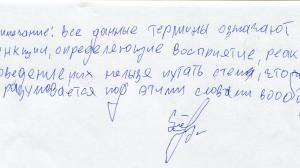 имание: все данные термины означают
нкции, определяющие восприятие, реак
оведение, их нельзя путать с тем, что
разумевается под этими словами вооб